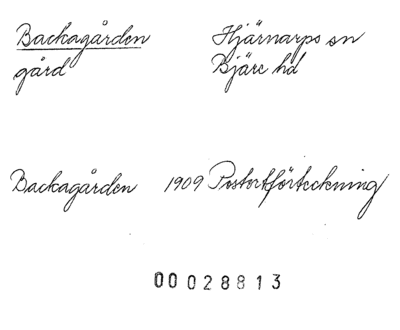 Backagården Hjärnarps sn
gård Bjäre hd
Backagården 1909 Postortförteckning
00028813